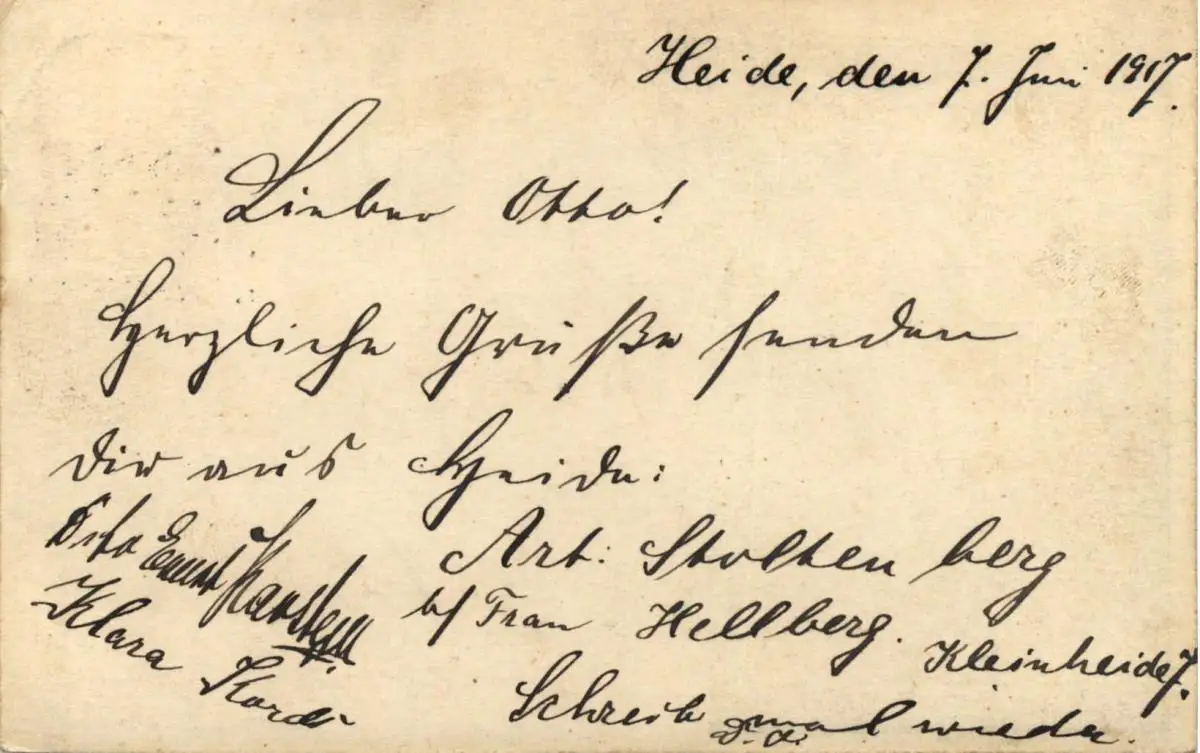 Heide, den 7. Juni 1917.
Lieber Otto!
Herzliche Grüße senden
Dir aus Heide:
Ernst Karstens
Klara
Art: Stoltenberg
b/ Frau Hellberg.
Kleinheide 7.
Schreib mal wieder.